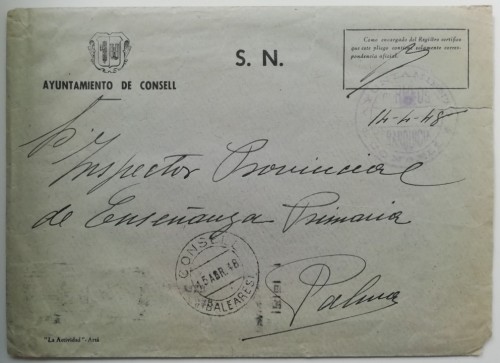 S. N.
Como encargado del Registro certifico
que este pliego contiene solamente corres-
pondencia oficial.
AYUNTAMIENTO DE CONSELL
14-4-48
Sr.
Inspector Provincial
de Enseñanza Primaria
Palma
CONSELL
15 ABR. 48
(BALEARES)
"La Actividad".-Artá